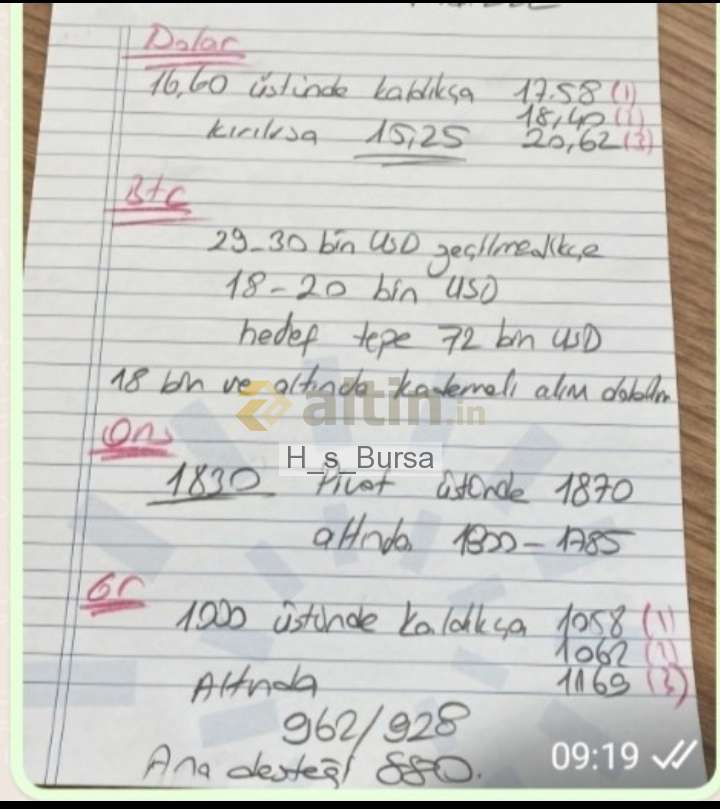 Dolar
16,60 üstünde kaldıkça 17.58 (1)
18,40 (2)
kırılırsa 15,25 20,62 (3)
Btc
29-30 bin USD geçilmedikçe
18-20 bin USD
hedef tepe 72 bin USD
18 bin ve altında kademeli alım
altin.in
Ons
H_s_Bursa
1830 Pivot üstünde 1870
altında 1800-1785
Gr
1000 üstünde kaldıkça 1058 (1)
1062
Altında 1169 (3)
962/928
Ana desteği 880.
09:19